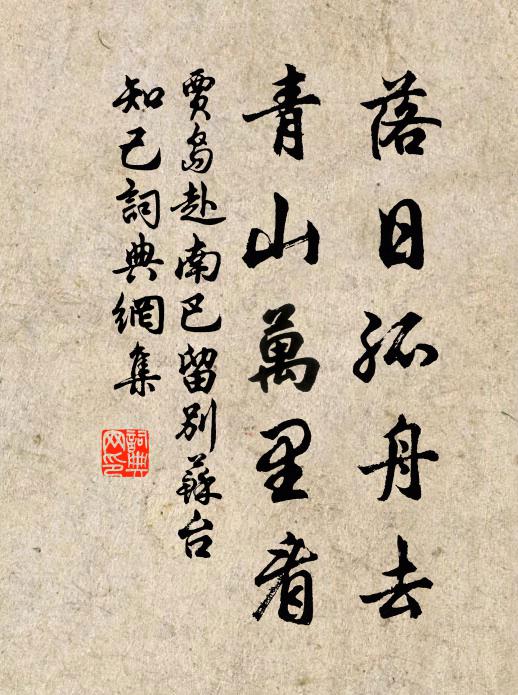 落日孤舟去
青山萬里看
賈島赴南巴留別蘇台
知己詞典網集
詞典
网印